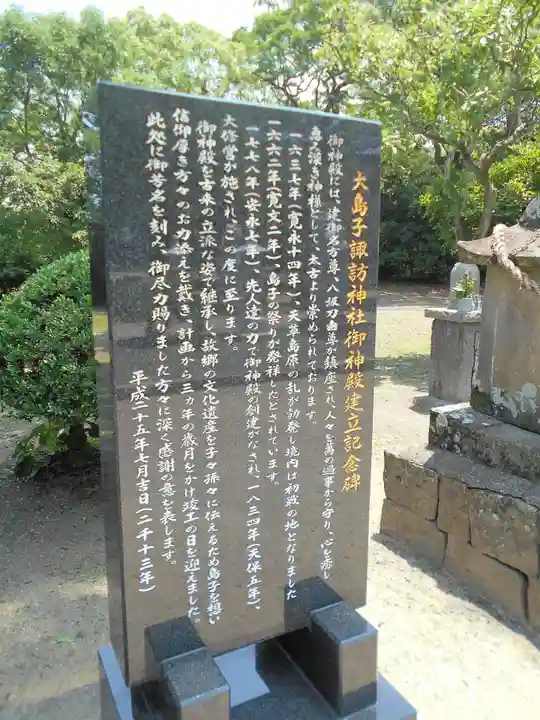 大島子諏訪神社御神殿建立記念碑
御神殿には、建御名方尊、八坂刀売尊が鎮座され、人々を萬の過事から守り、心を癒し
恵み深き神様として、太古より崇められております。
一六三七年(寛永十四年)、天草島原の乱が勃発し境内は初戦の地となりました
一六六二年(寛文二年)、島子の祭りが発祥したとされています。
一七七八年(安永七年)、先人達の力で御神殿の創建がなされ、一八三四年(天保五年)、
大修営が施され、この度に至ります。
御神殿を古来の立派な姿で継承し、故郷の文化遺産を子々孫々に伝えるため島子を想い
信仰厚き方々のお力添えを戴き、計画から三ヵ年の歳月をかけ竣工の日を迎えました。
此処に御芳名を刻み、御尽力賜りました方々に深く感謝の意を表します。
平成二十五年七月吉日(二千十三年)